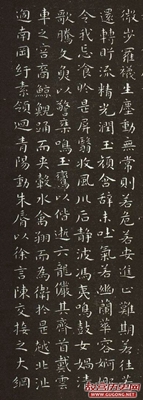 微步羅襪生塵動無常則若危若安進止難期若往若
還轉眄流精光潤玉顏含辭未吐氣若幽蘭華容婀娜
令我忘飡於是屏翳收風川后靜波馮夷鳴鼓女媧清
歌騰文魚以警乘鳴玉鸞以偕逝六龍儼其齊首載雲
車之容裔鯨鯢踊而夾轂水禽翔而為衛於是越北沚
過南岡紆素領迴清陽動朱脣以徐言陳交接之大綱